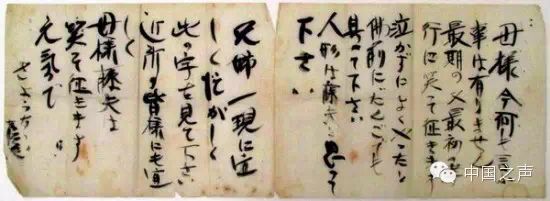 母様今何も言ふ
事は有りません
最期の又最初の孝
行に笑って征きます
泣かずによくやったと
佛前にだんごでも
具へて下さい
人形は藤夫と思って
下さい
兄姉一現に宜
しく忙がしく
此の字を見て下さい
近所の皆様にも宜
しく
母様藤夫は
笑って征きます
元気で
さようなら
中国之声